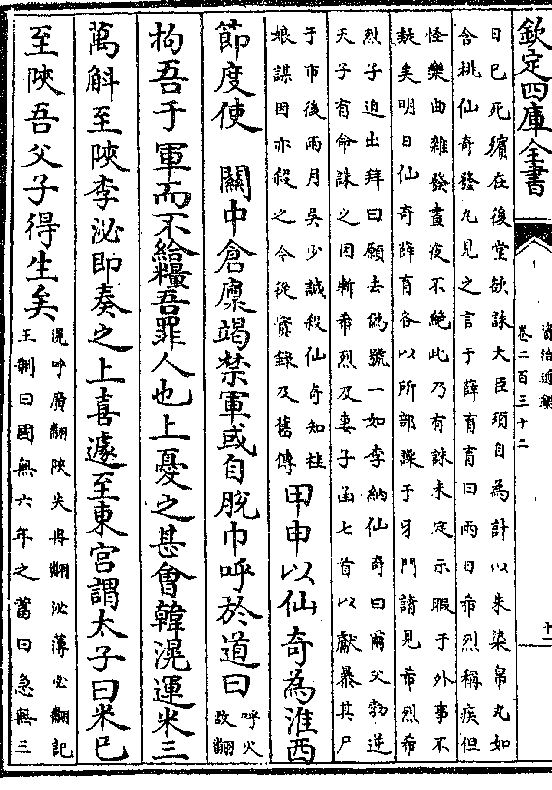 欽定四庫全書
資治通鑑
卷二百三十二
十二
日已死殯在後堂欲誅大臣須自為計以朱染帛丸如
含桃仙奇發丸見之言于薛育育曰兩日希烈稱疾但
怪樂曲雜發晝夜不絶此乃有謀未定示暇于外事不
疑矣明日仙奇薛育各以所部譟于牙門請見希烈希
烈子迫出拜曰願去偽號一如李納仙奇曰爾父勃逆
天子有命誅之因斬希烈及妻子函七首以獻暴其尸
于市後兩月吳少誠殺仙奇知桂
娘謀因亦殺之今從實錄及舊傳
甲申以仙奇為淮西
節度使　關中倉廩竭禁軍或自脫巾呼於道曰
呼火
故翻
拘吾于軍而不給糧吾罪人也上憂之甚會韓滉運米三
萬斛至陝李泌即奏之上喜遽至東宮謂太子曰米已
至陝吾父子得生矣
滉呼廣翻陝失冉翻泌薄必翻記
王制曰國無六年之蓄曰急無三